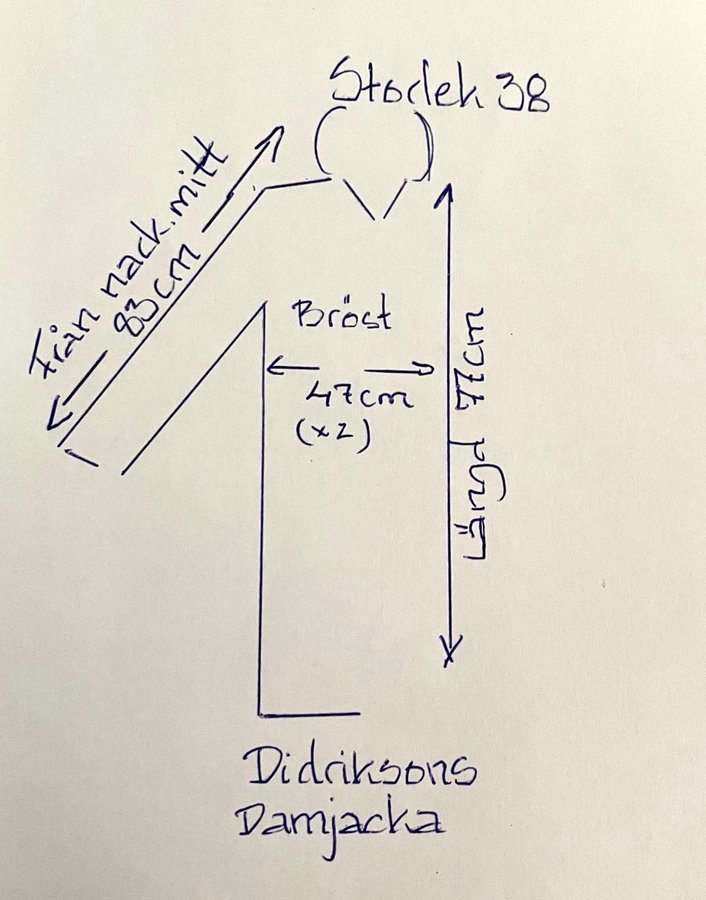 Storlek 38
Från nack.mitt
83cm
Bröst
47cm
(x2)
Längd 77cm
Didriksons
Damjacka